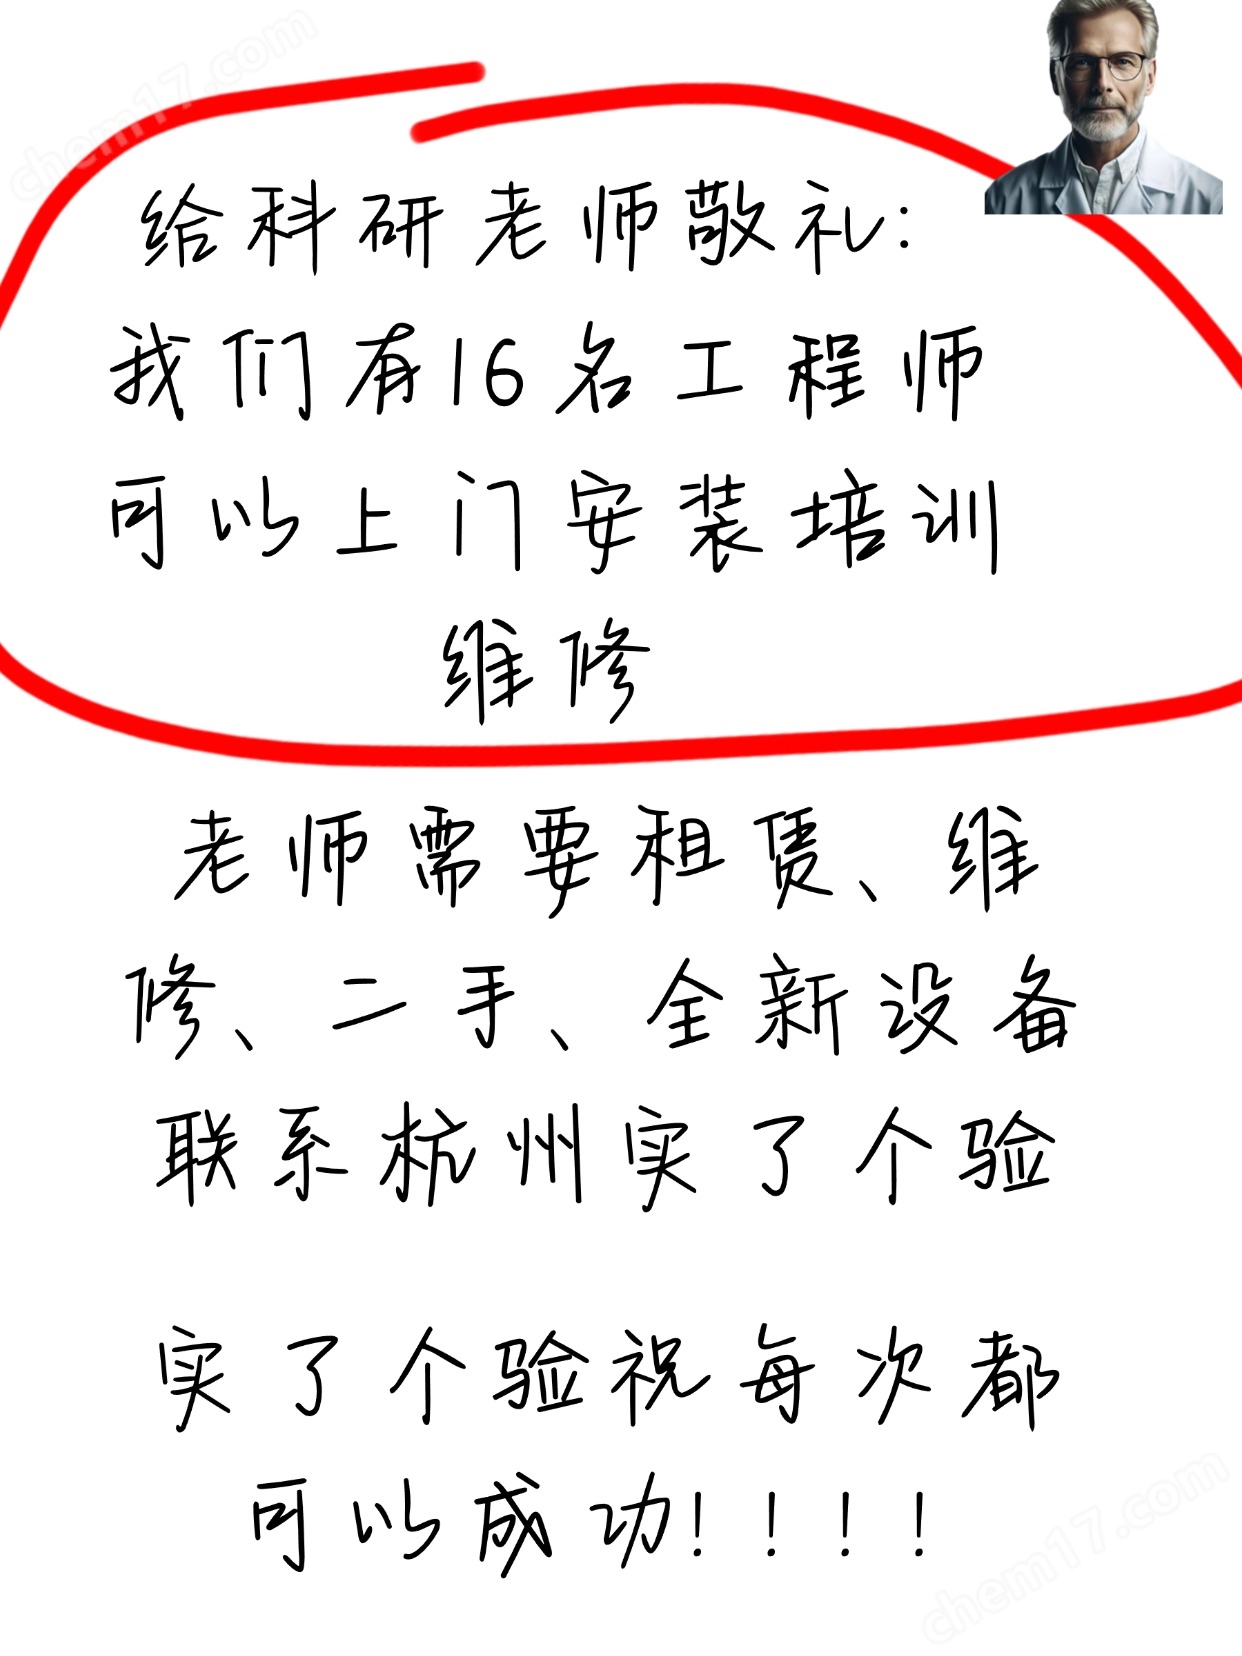 chem17.com
给科研老师敬礼:
我们有16名工程师
可以上门安装培训
维修
老师需要租赁、维
修、二手、全新设备
联系杭州实了个验
实了个验祝每次都
可以成功！！！！
chem17.com